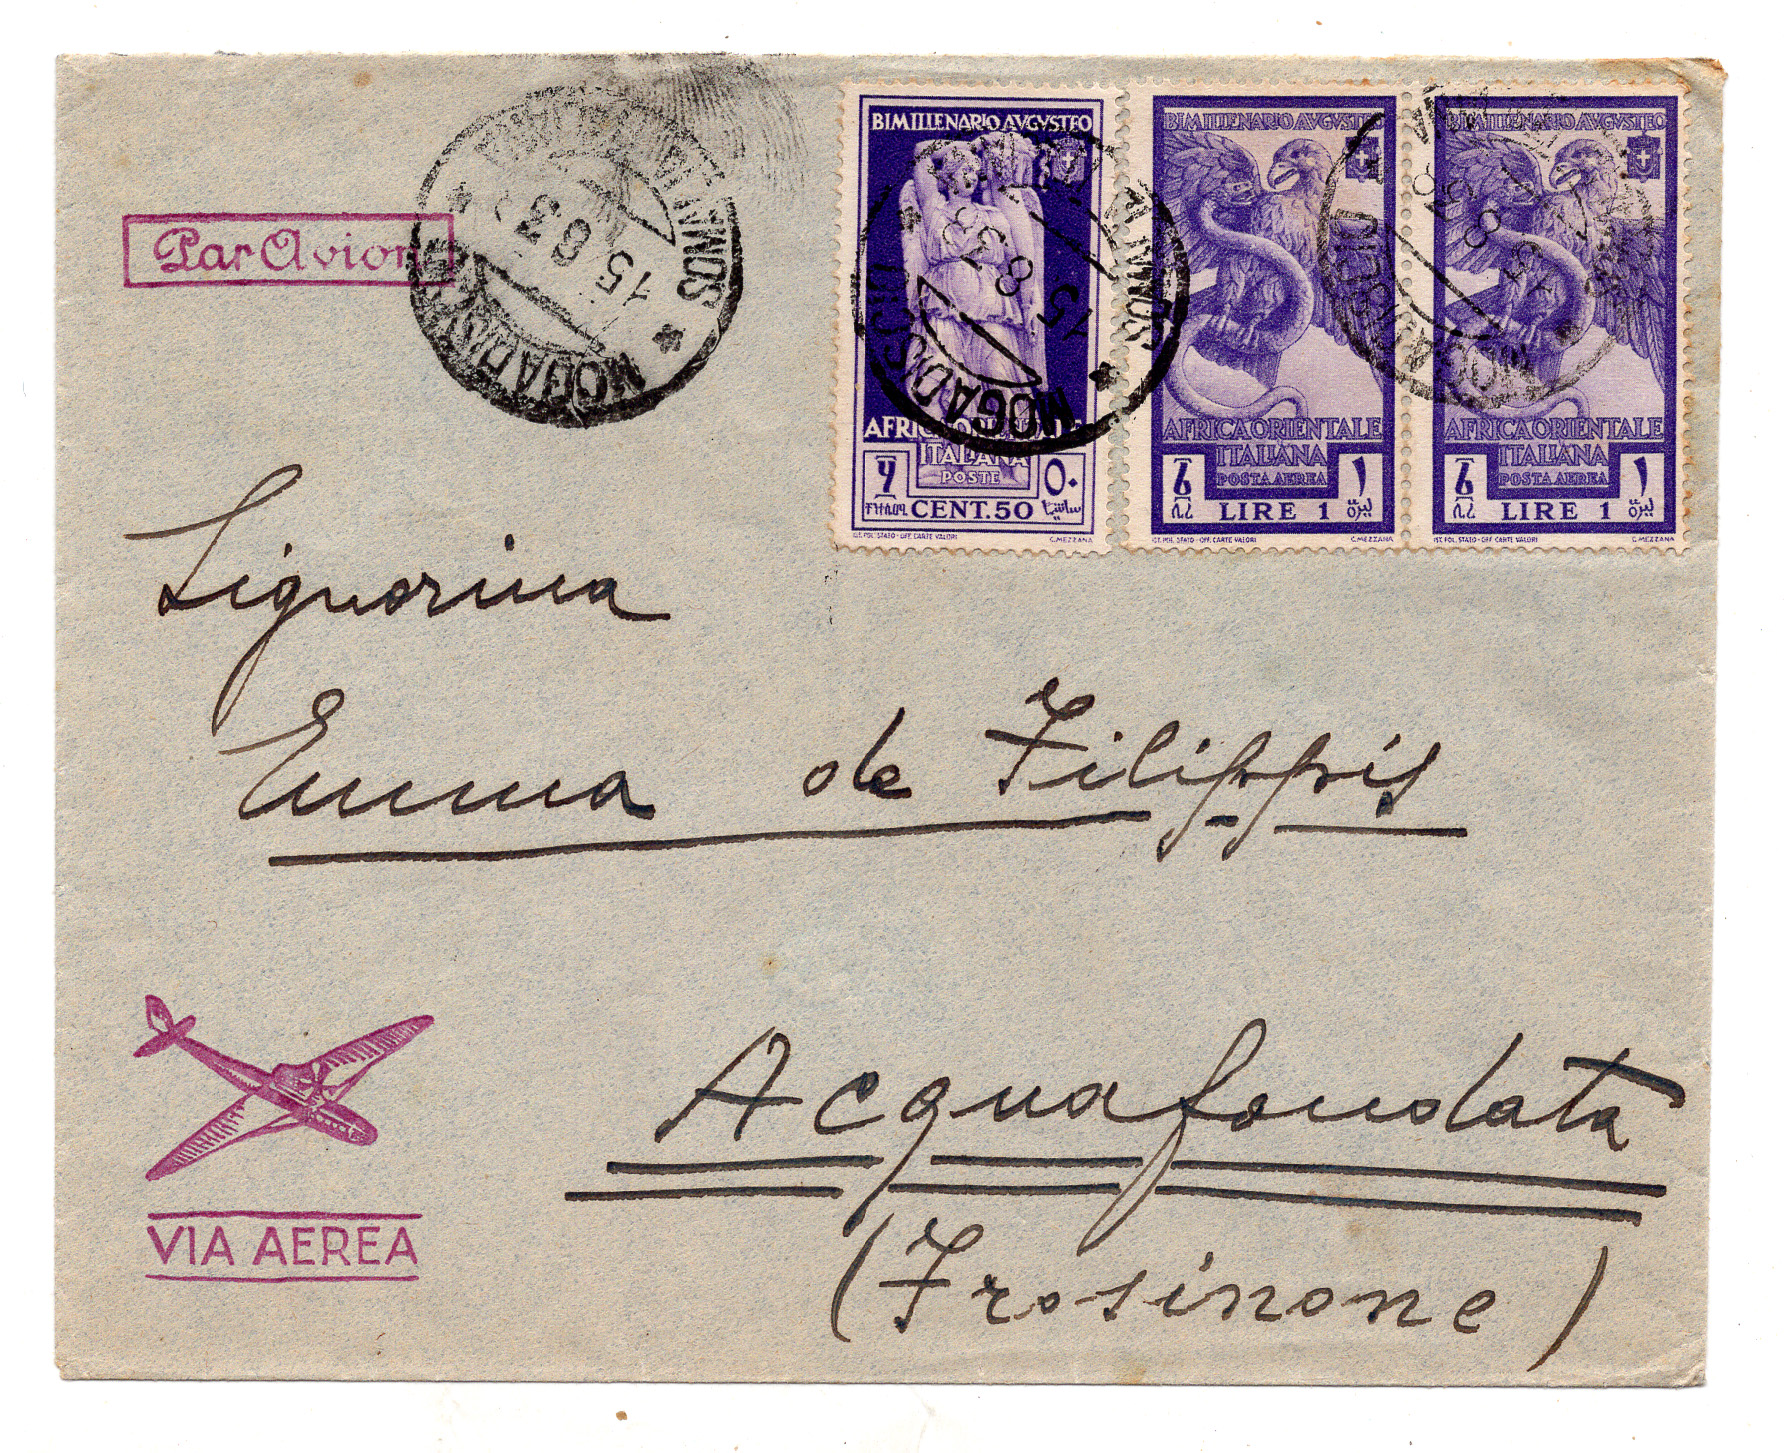 Par Avion
SOMALIA ITALIANA
15.8.3
MOGADISCIO
BIMILLENARIO AVGVSTEO
AFRICA ORIENTALE
ITALIANA
POSTE
፶ ٥٠
CENT. 50
IST. POL. STATO - OFF. CARTE VALORI C. MEZZANA
BIMILLENARIO AVGVSTEO
AFRICA ORIENTALE
ITALIANA
POSTA AEREA
١
LIRE 1 ليرة
IST. POL. STATO - OFF. CARTE VALORI C. MEZZANA
BIMILLENARIO AVGVSTEO
AFRICA ORIENTALE
ITALIANA
POSTA AEREA
١
LIRE 1 ليرة
IST. POL. STATO - OFF. CARTE VALORI C. MEZZANA
SOMALIA
15 8 38
MOGADISCIO
15 8 38
MOGADISCIO
Signorina
Emma de Filippis
Acquafondata
(Frosinone)
VIA AEREA